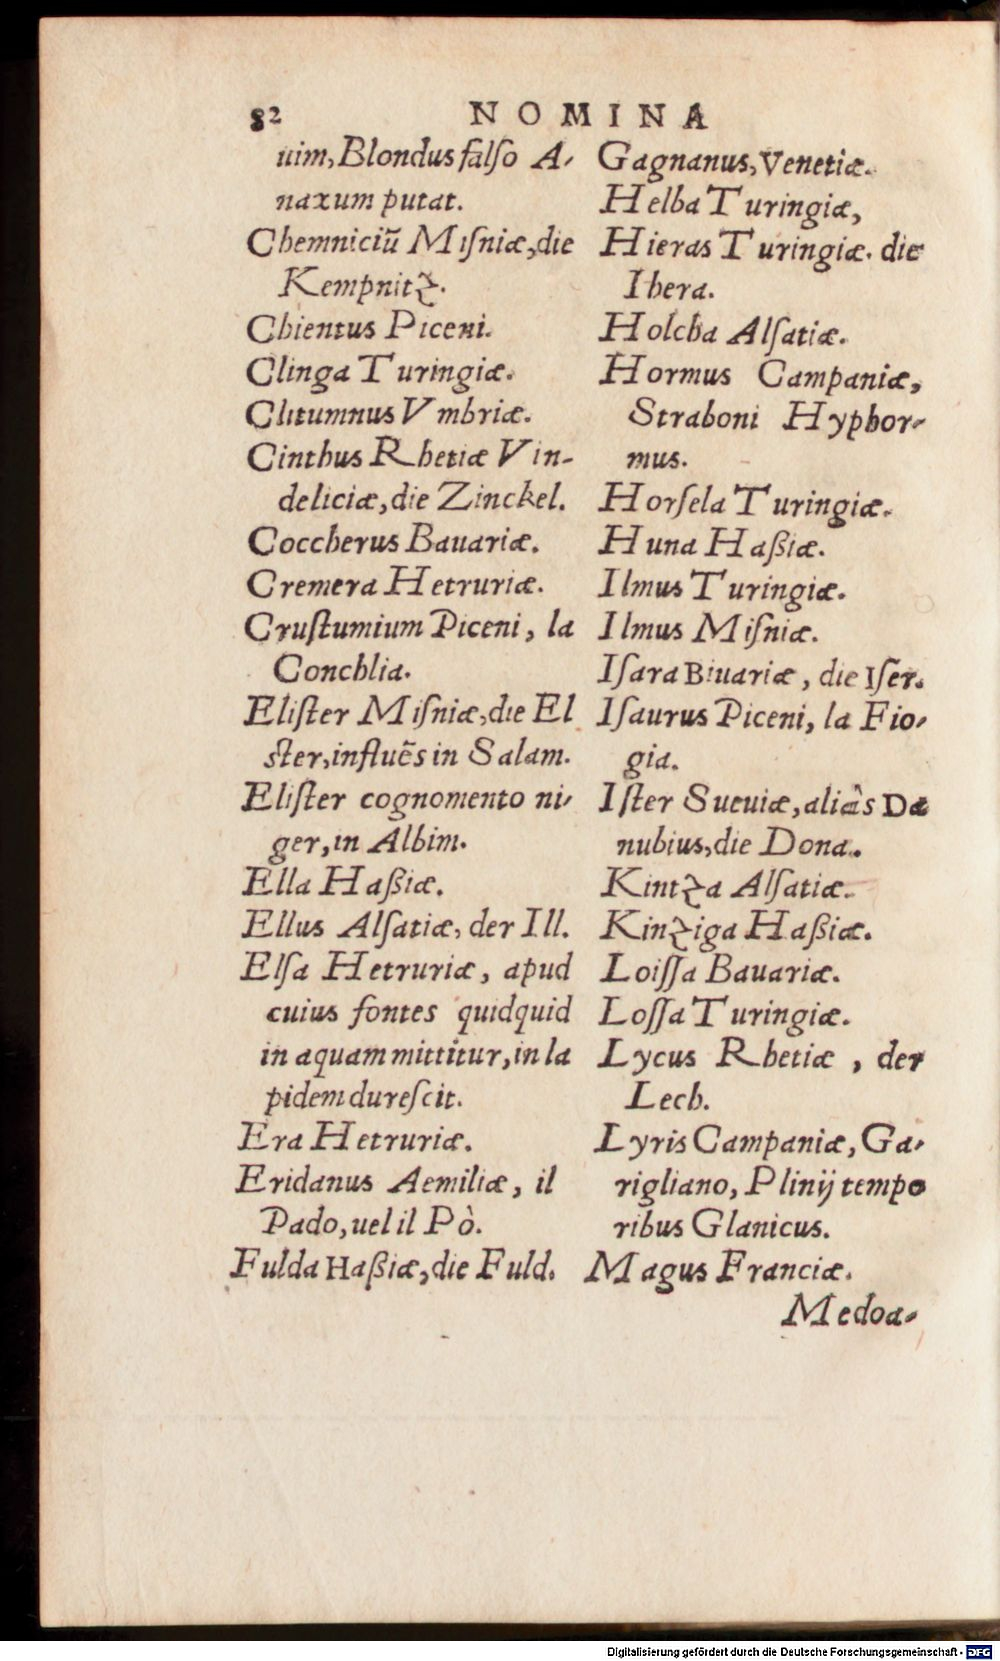 82 NOMINA
uim, Blondus falſo A-
naxum putat.
Chemniciū Miſniæ, die
Kempnitz.
Chientus Piceni.
Clinga Turingiæ.
Clitumnus Vmbriæ.
Cinthus Rhetiæ Vin-
deliciæ, die Zinckel.
Coccherus Bauariæ.
Cremera Hetruriæ.
Cruſtumium Piceni, la
Conchlia.
Eliſter Miſniæ, die El
ſter, influẽs in Salam.
Eliſter cognomento ni-
ger, in Albim.
Ella Haßiæ.
Ellus Alſatiæ, der Ill.
Elſa Hetruriæ, apud
cuius fontes quidquid
in aquam mittitur, in la
pidem dureſcit.
Era Hetruriæ.
Eridanus Aemiliæ, il
Pado, uel il Pò.
Fulda Haßiæ, die Fuld.
Gagnanus, Venetiæ.
Helba Turingiæ,
Hieras Turingiæ. die
Ihera.
Holcha Alſatiæ.
Hormus Campaniæ,
Straboni Hyphor-
mus.
Horſela Turingiæ.
Huna Haßiæ.
Ilmus Turingiæ.
Ilmus Miſniæ.
Iſara Biuariæ, die Iſer.
Iſaurus Piceni, la Fio-
gia.
Iſter Sueuiæ, aliâs Da
nubius, die Dona.
Kintza Alſatiæ.
Kinziga Haßiæ.
Loiſſa Bauariæ.
Loſſa Turingiæ.
Lycus Rhetiæ, der
Lech.
Lyris Campaniæ, Ga-
rigliano, Plinij tempo
ribus Glanicus.
Magus Franciæ.
Medoa-
Digitalisierung gefördert durch die Deutsche Forschungsgemeinschaft - DFG